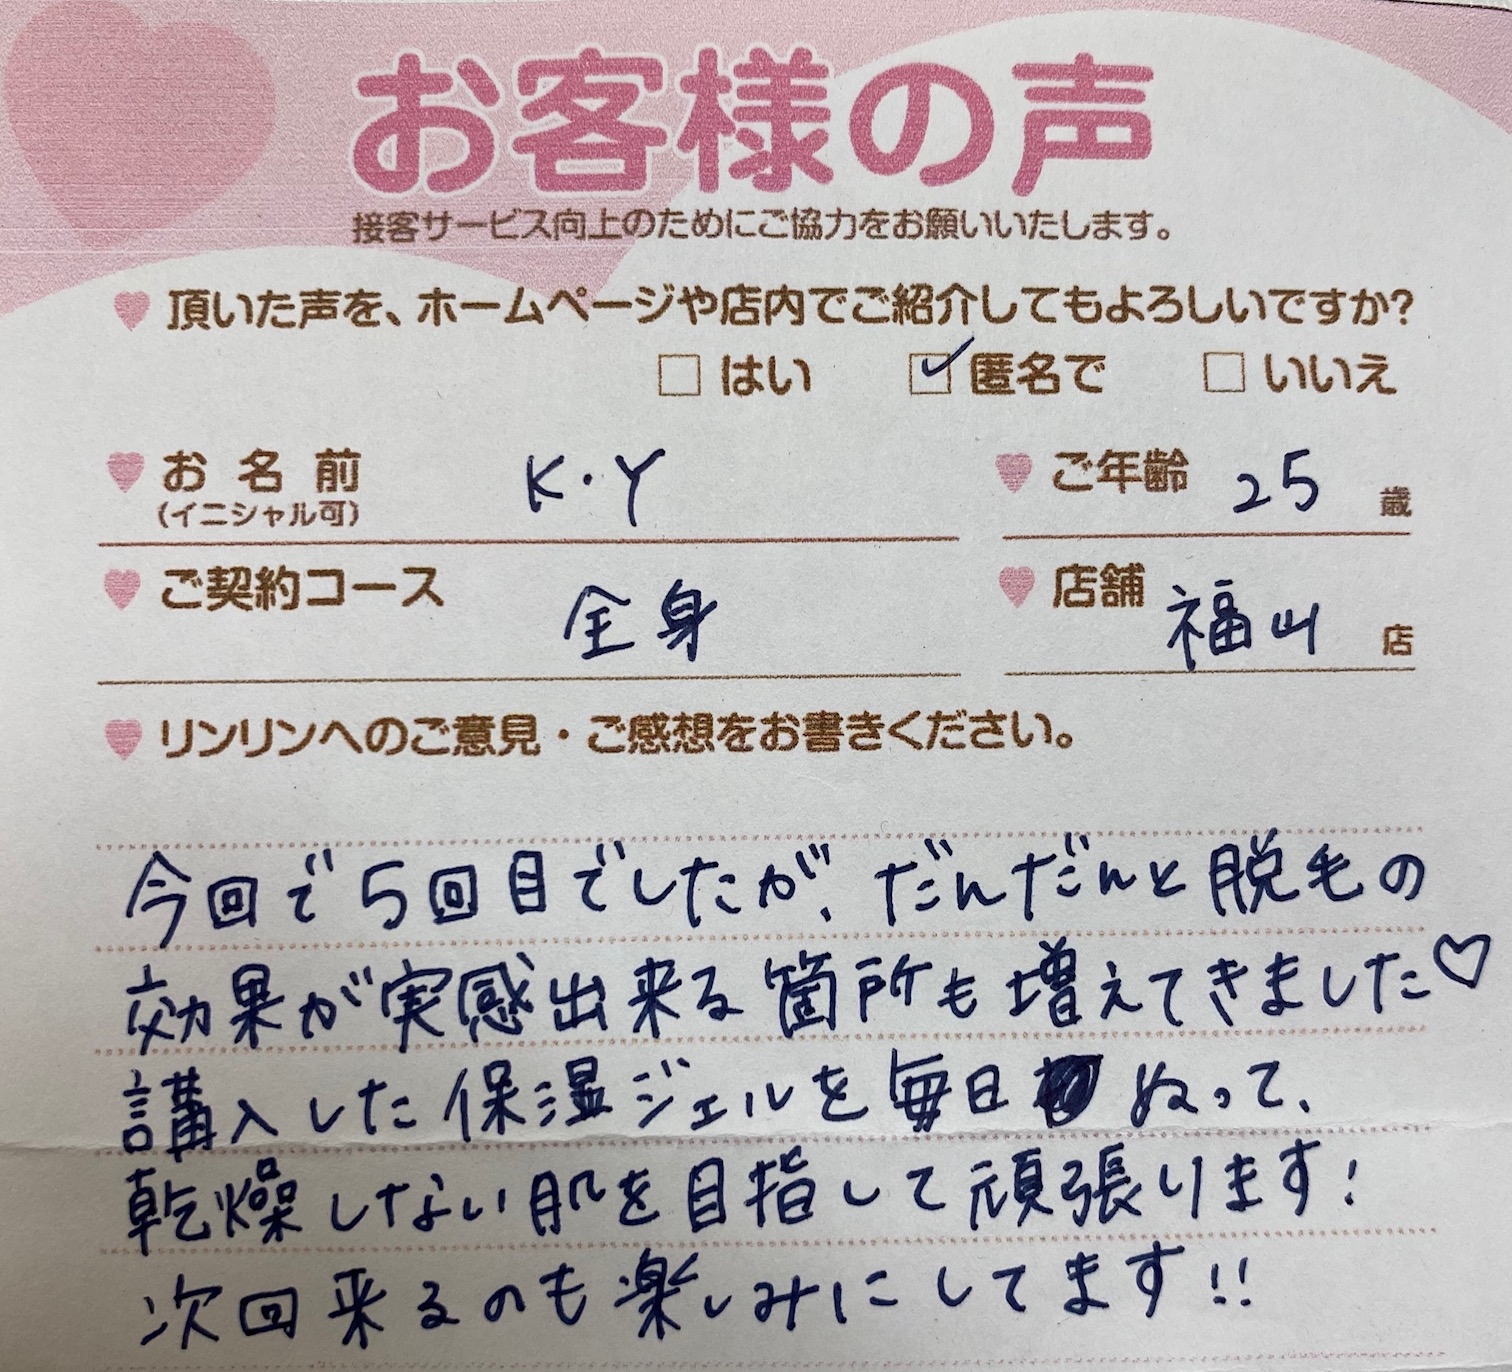 お客様の声
接客サービス向上のためにご協力をお願いいたします。
頂いた声を、ホームページや店内でご紹介してもよろしいですか?
□ はい ☑ 匿名で □ いいえ
お名前 K.Y ご年齢 25 歳
(イニシャル可)
ご契約コース 全身 店舗 福山 店
リンリンへのご意見・ご感想をお書きください。
今回で5回目でしたが、だんだんと脱毛の
効果が実感出来る箇所も増えてきました♡
講入した保湿ジェルを毎日ぬって、
乾燥しない肌を目指して頑張ります!
次回来るのも楽しみにしてます!!